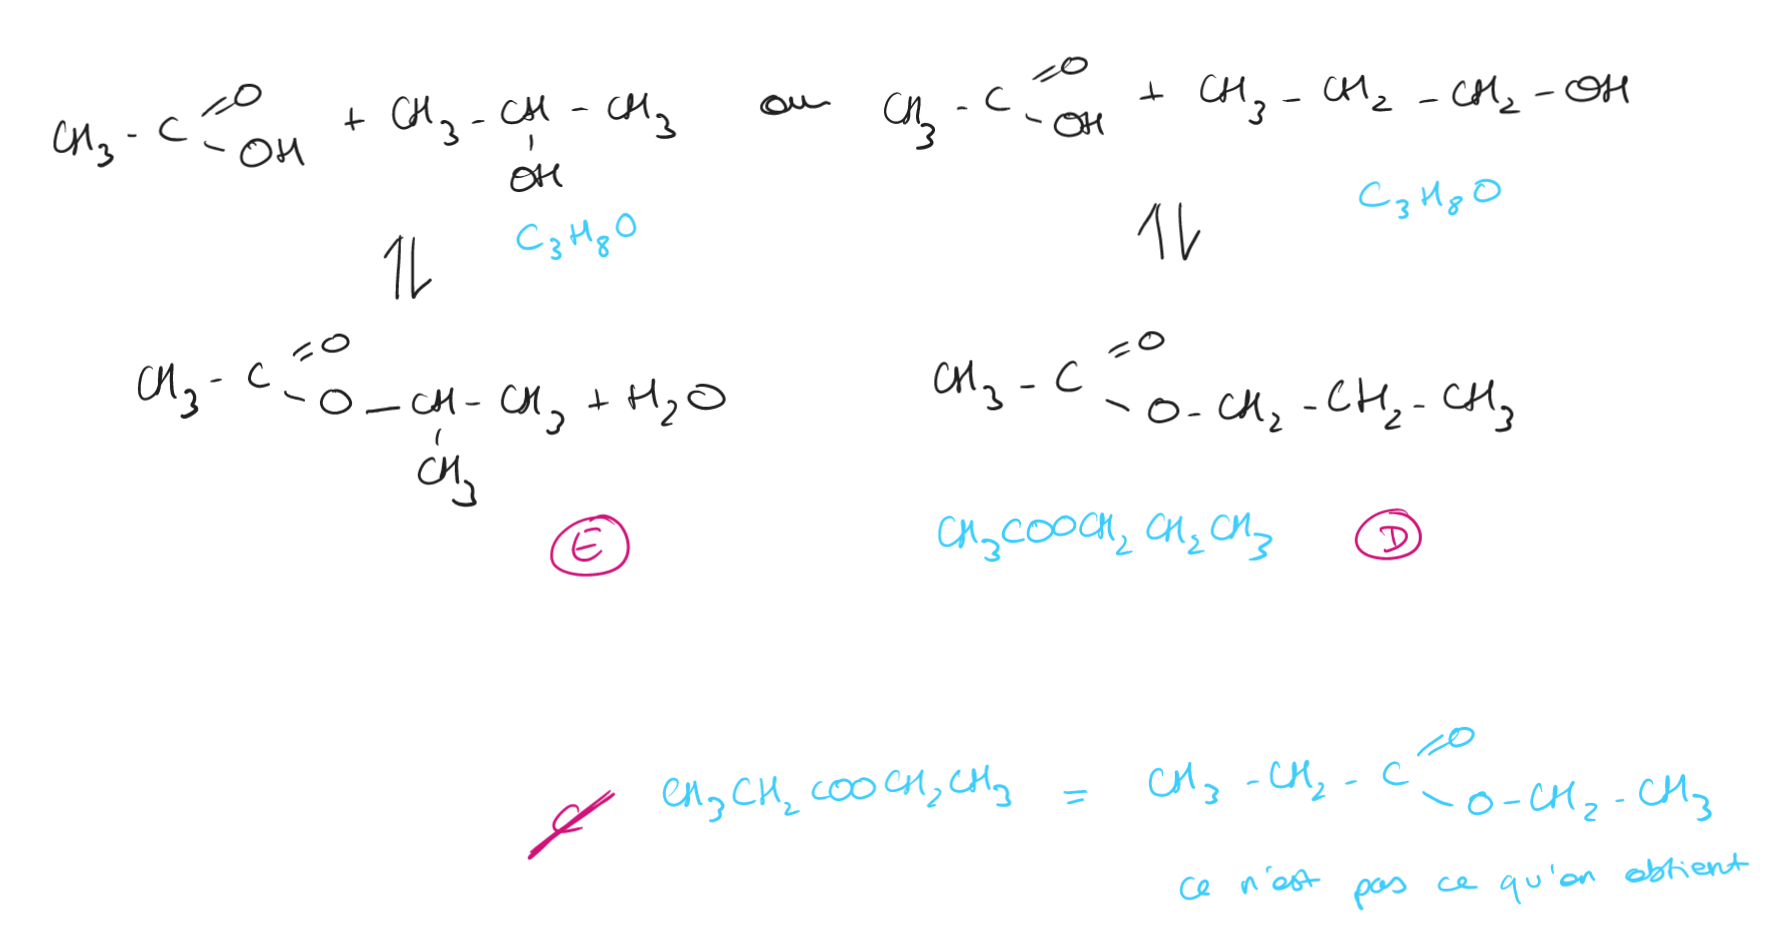 CH3 - C =O - OH + CH3 - CH - CH3 ou CH3 - C =O - OH + CH3 - CH2 - CH2 - OH
OH
C3H8O C3H8O
⇌ ⇌
CH3 - C =O - O - CH - CH3 + H2O CH3 - C =O - O - CH2 - CH2 - CH3
CH3
E CH3COOCH2CH2CH3 D
C CH3CH2COOCH2CH3 = CH3 - CH2 - C =O - O - CH2 - CH3
ce n'est pas ce qu'on obtient